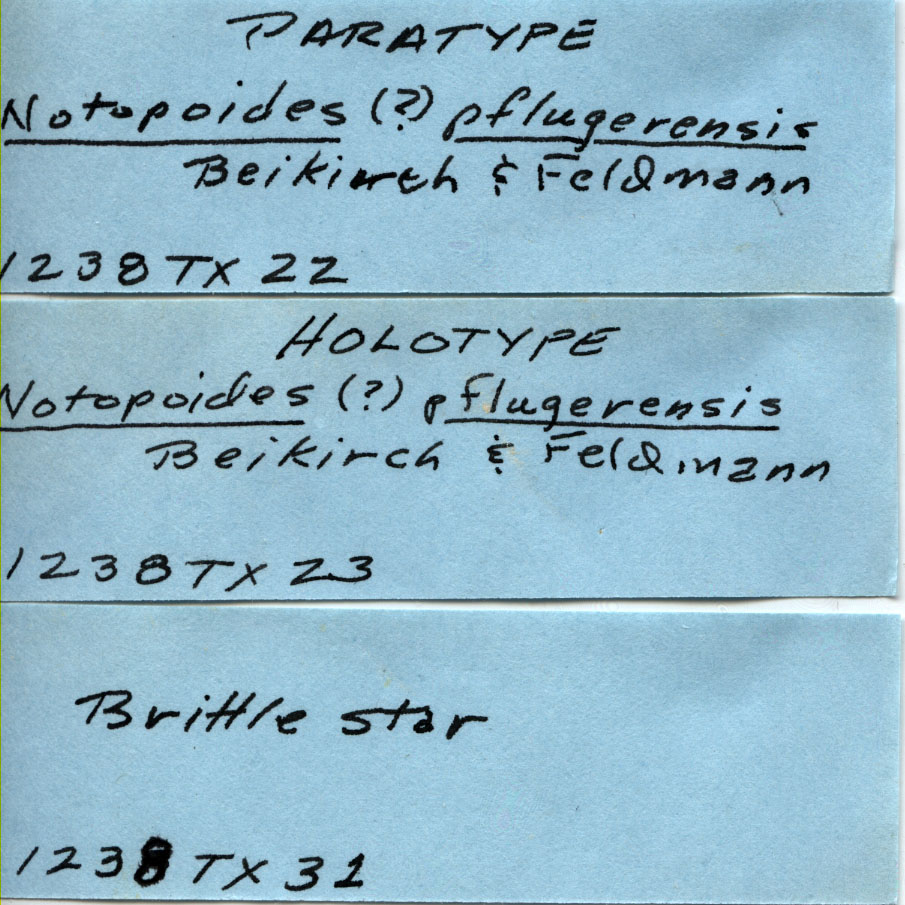 PARATYPE
Notopoides (?) pflugerensis
Beikirch & Feldmann
1238 TX 22
HOLOTYPE
Notopoides (?) pflugerensis
Beikirch & Feldmann
1238 TX 23
Brittle star
1238 TX 31